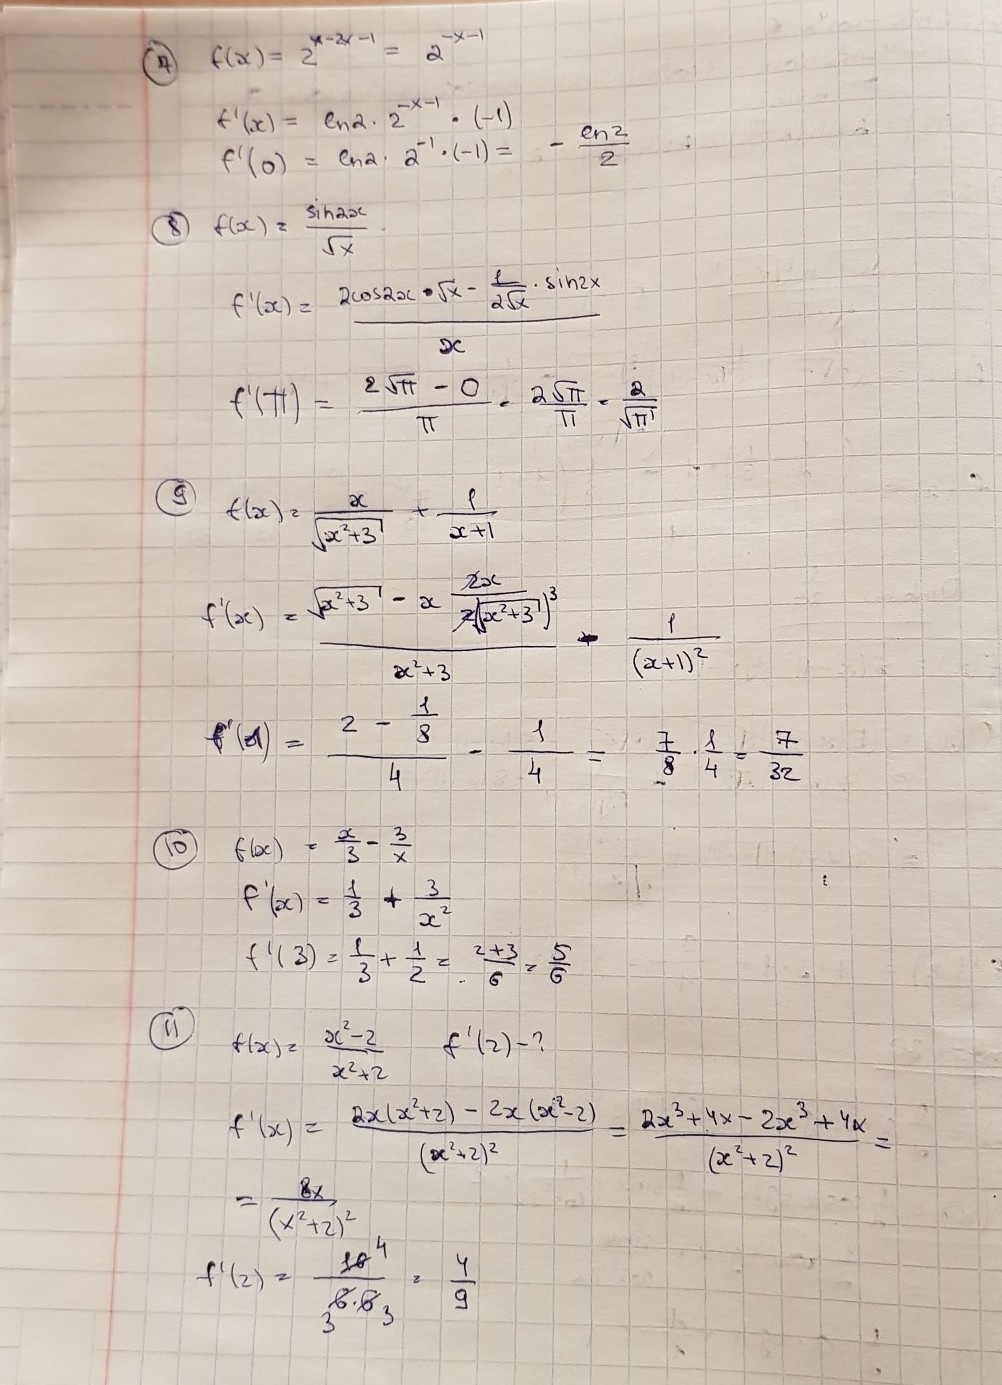 7 f(x) = 2^{x-2x-1} = 2^{-x-1}
f'(x) = ln2 · 2^{-x-1} · (-1)
f'(0) = ln2 · 2^{-1} · (-1) = - ln2/2
8 f(x) = sin2x/√x
f'(x) = (2cos2x · √x - 1/(2√x) · sin2x)/x
f'(π) = (2√π - 0)/π = 2√π/π = 2/√π
9 f(x) = x/√(x²+3) + 1/(x+1)
f'(x) = (√(x²+3) - x 2x/(2(√(x²+3))³))/(x²+3) - 1/(x+1)²
f'(1) = (2 - 1/8)/4 - 1/4 = 7/8 · 1/4 = 7/32
10 f(x) = x/3 - 3/x
f'(x) = 1/3 + 3/x²
f'(3) = 1/3 + 1/2 = (2+3)/6 = 5/6
11 f(x) = (x²-2)/(x²+2) f'(2) - ?
f'(x) = (2x(x²+2) - 2x(x²-2))/(x²+2)² = (2x³+4x-2x³+4x)/(x²+2)² =
= 8x/(x²+2)²
f'(2) = 16 4/(6·6) 3 3 = 4/9